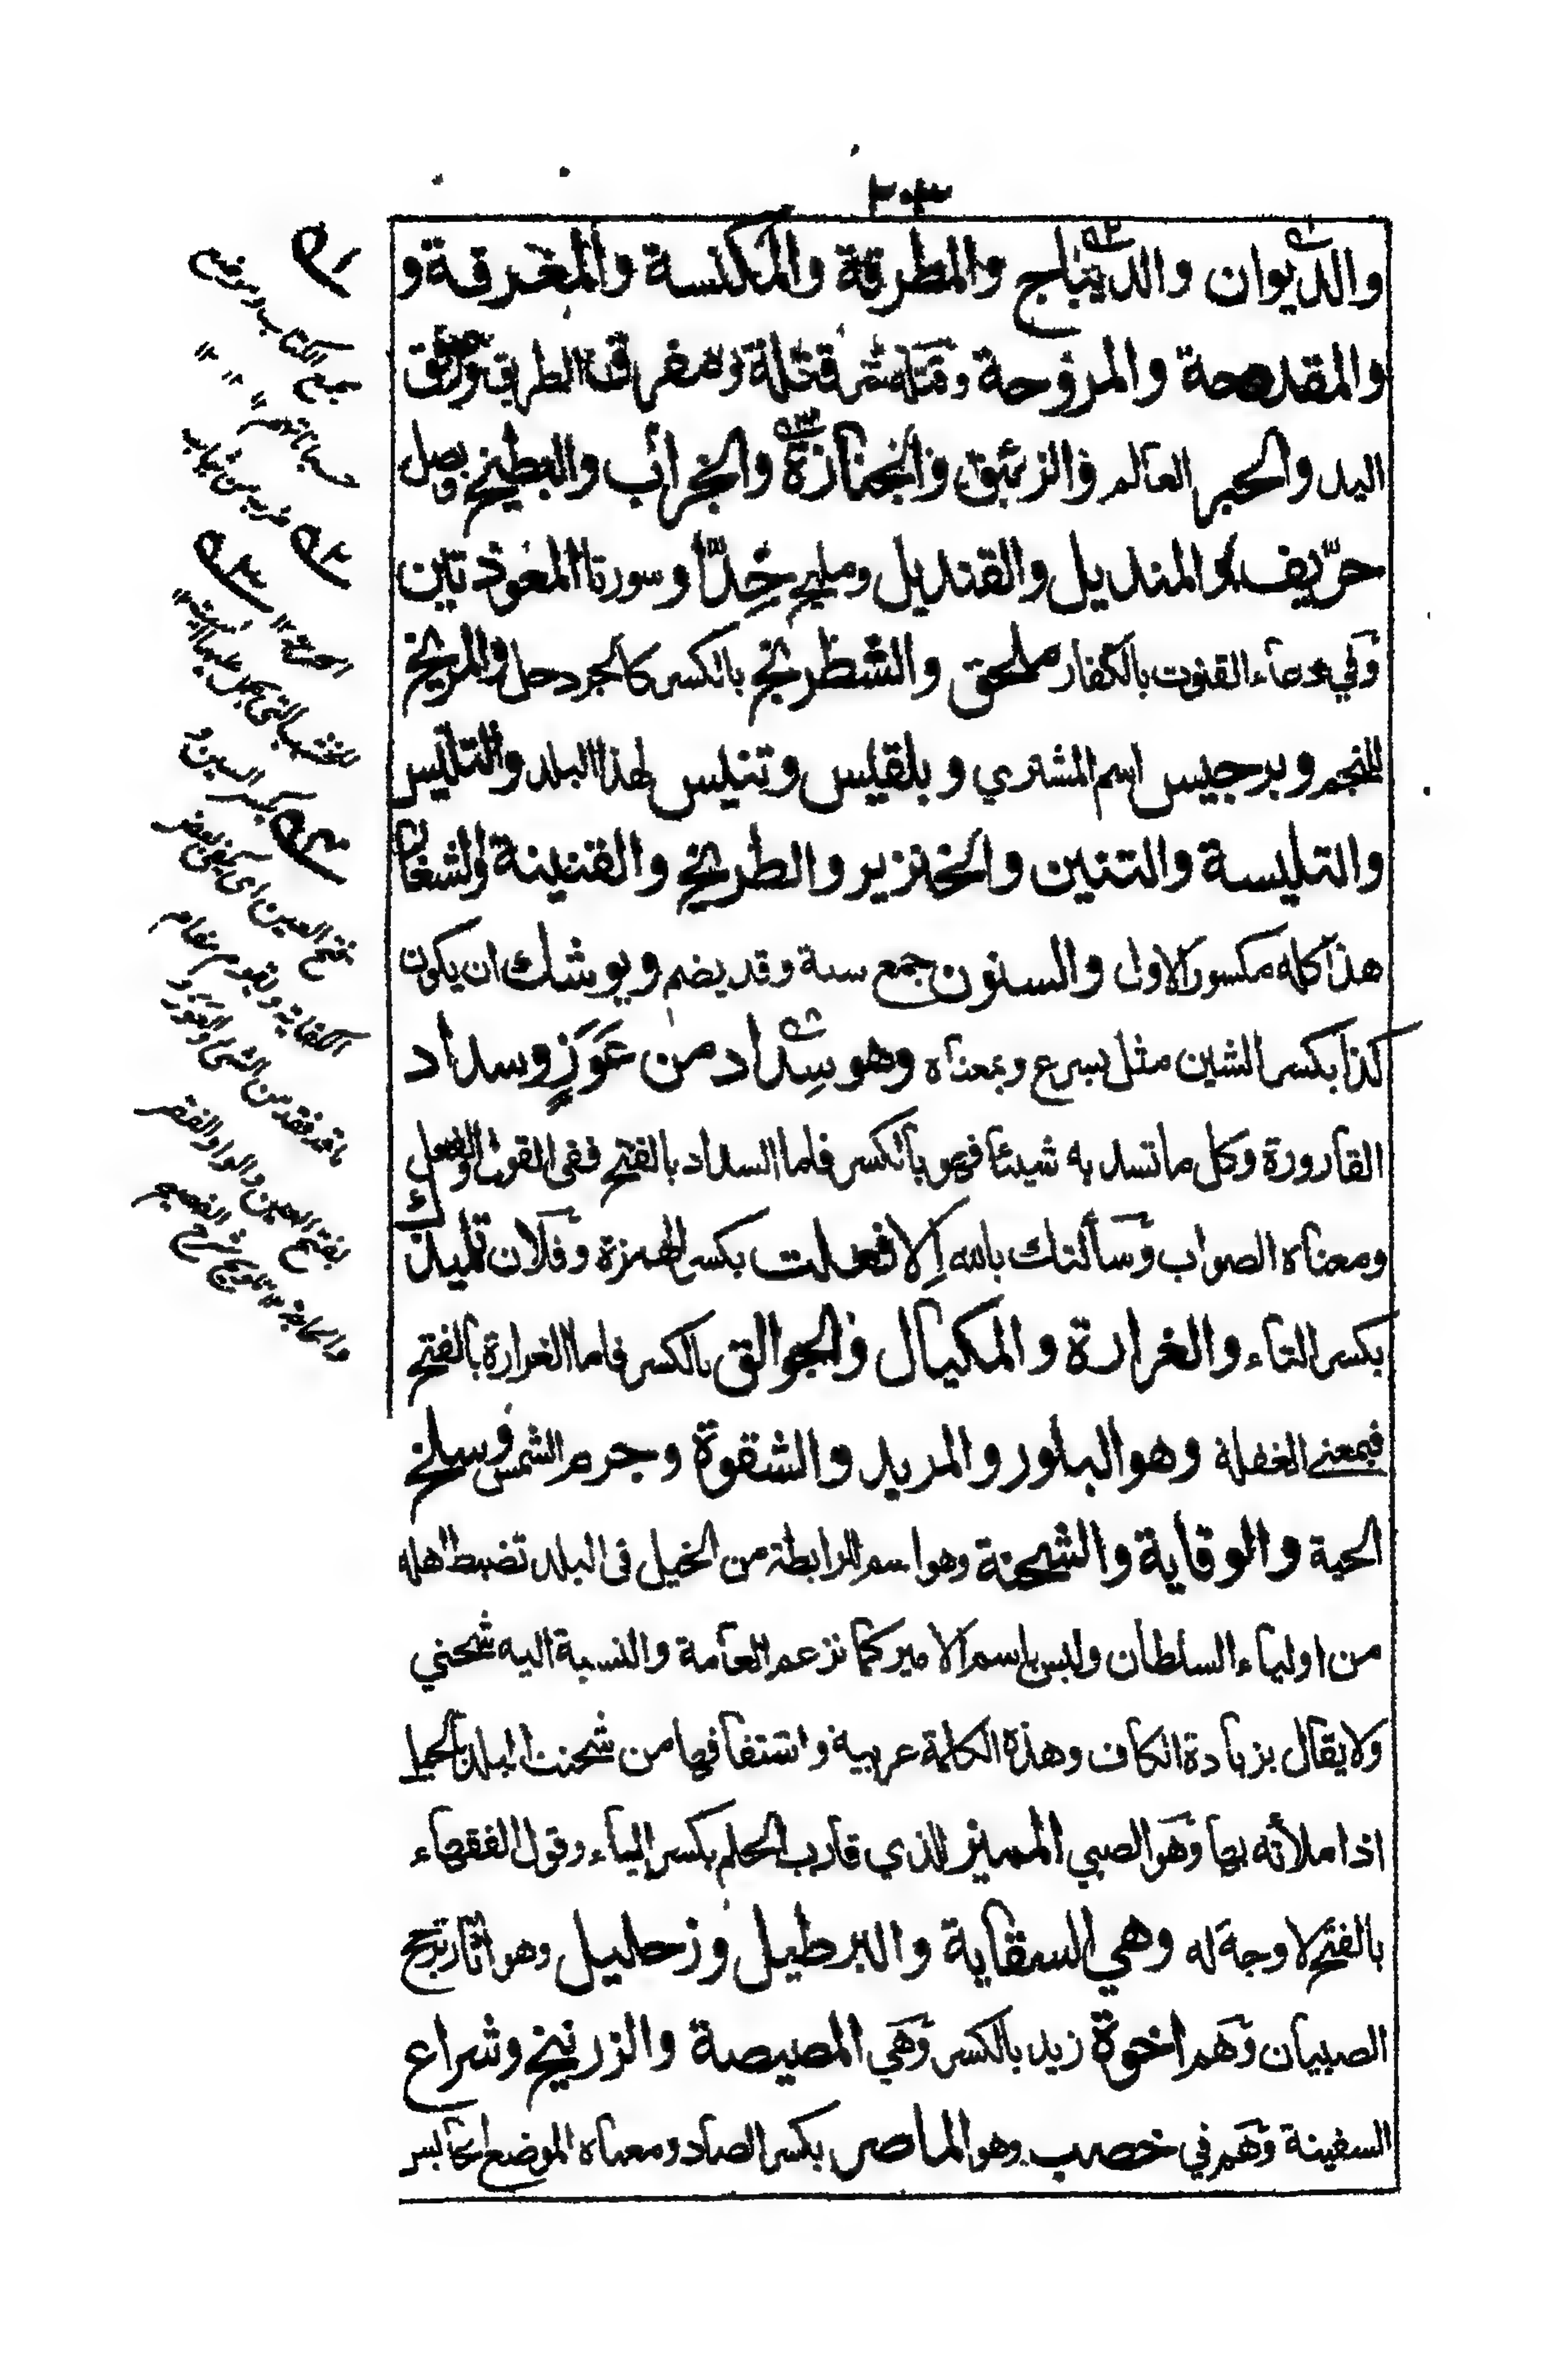 ٢٠٣
والديوان والديباج والمطرقة والمكنسة والمغرفة و
والمقدحة والمروحة وقتله شر قتلة وهو مفرق الطريق ومرفق
اليد والحبر العالم والزئبق والجنازة والجراب والبطيخ وبصل
حرّيف والمنديل والقنديل ومليح جِدّا وسورتا المعوذتين
وفي دعاء القنوت بالكفار ملحق والشطرنج بالكسر كالجردحل والمريخ
للنجم وبرجيس اسم المشتري وبلقيس وتنيس لهذا البلد والتليس
والتليسة والتنين والخنزير والطريخ والقنينة والشغار
هذا كله مكسور الاول والسنون جمع سنة وقد يضم ويوشك ان يكون
كذا بكسر الشين مثل يسرع وبمعناه وهو سِداد من عَوَزٍ وسداد
القارورة وكل ما تسد به شيئا فهو بالكسر فاما السداد بالفتح ففي القول والفعل
ومعناه الصواب وسألتك بالله اِلا فعلت بكسر الهمزة وفلان تلميذك
بكسر التاء والغرارة والمكيال والجوالق بالكسر فاما الغرارة بالفتح
فبمعنى الغفلة وهو البلور والمريد والشقوة وجرم الشمس وسلخ
الحية والوقاية والشحنة وهو اسم للرابطة من الخيل في البلد تضبط اهله
من اولياء السلطان وليس باسم الامير كما تزعم العامة والنسبة اليه شحني
ولا يقال بزيادة الكاف وهذه الكلمة عربية واشتقاقها من شحنت البلد بالخيل
اذا ملأته بها وهو الصبي المميز الذي قارب الحلم بكسر الياء وقول الفقهاء
بالفتح لا وجه له وهي السقاية والبرطيل وزحليل وهو اثار تزلج
الصبيان وهم اخوة زيد بالكسر وهي المصيصة والزرنيخ وشراع
السفينة وهم في خصب وهو الماصر بكسر الصاد ومعناه الموضع الحابس
جمع الكتاب وموضع
حسباناتهم ١٢
ضرب من ثياب
الحرير ١٢
للخشب التي يحمل عليها الميت
بكسر السين و
فتح العين اي يكفي بعض
الكفاية ويقوم مقام
ما قد فقد من الشيء والعوز
بفتح العين والواو الفقر
والحاجة ١٢ تلويح شرح الفصيح